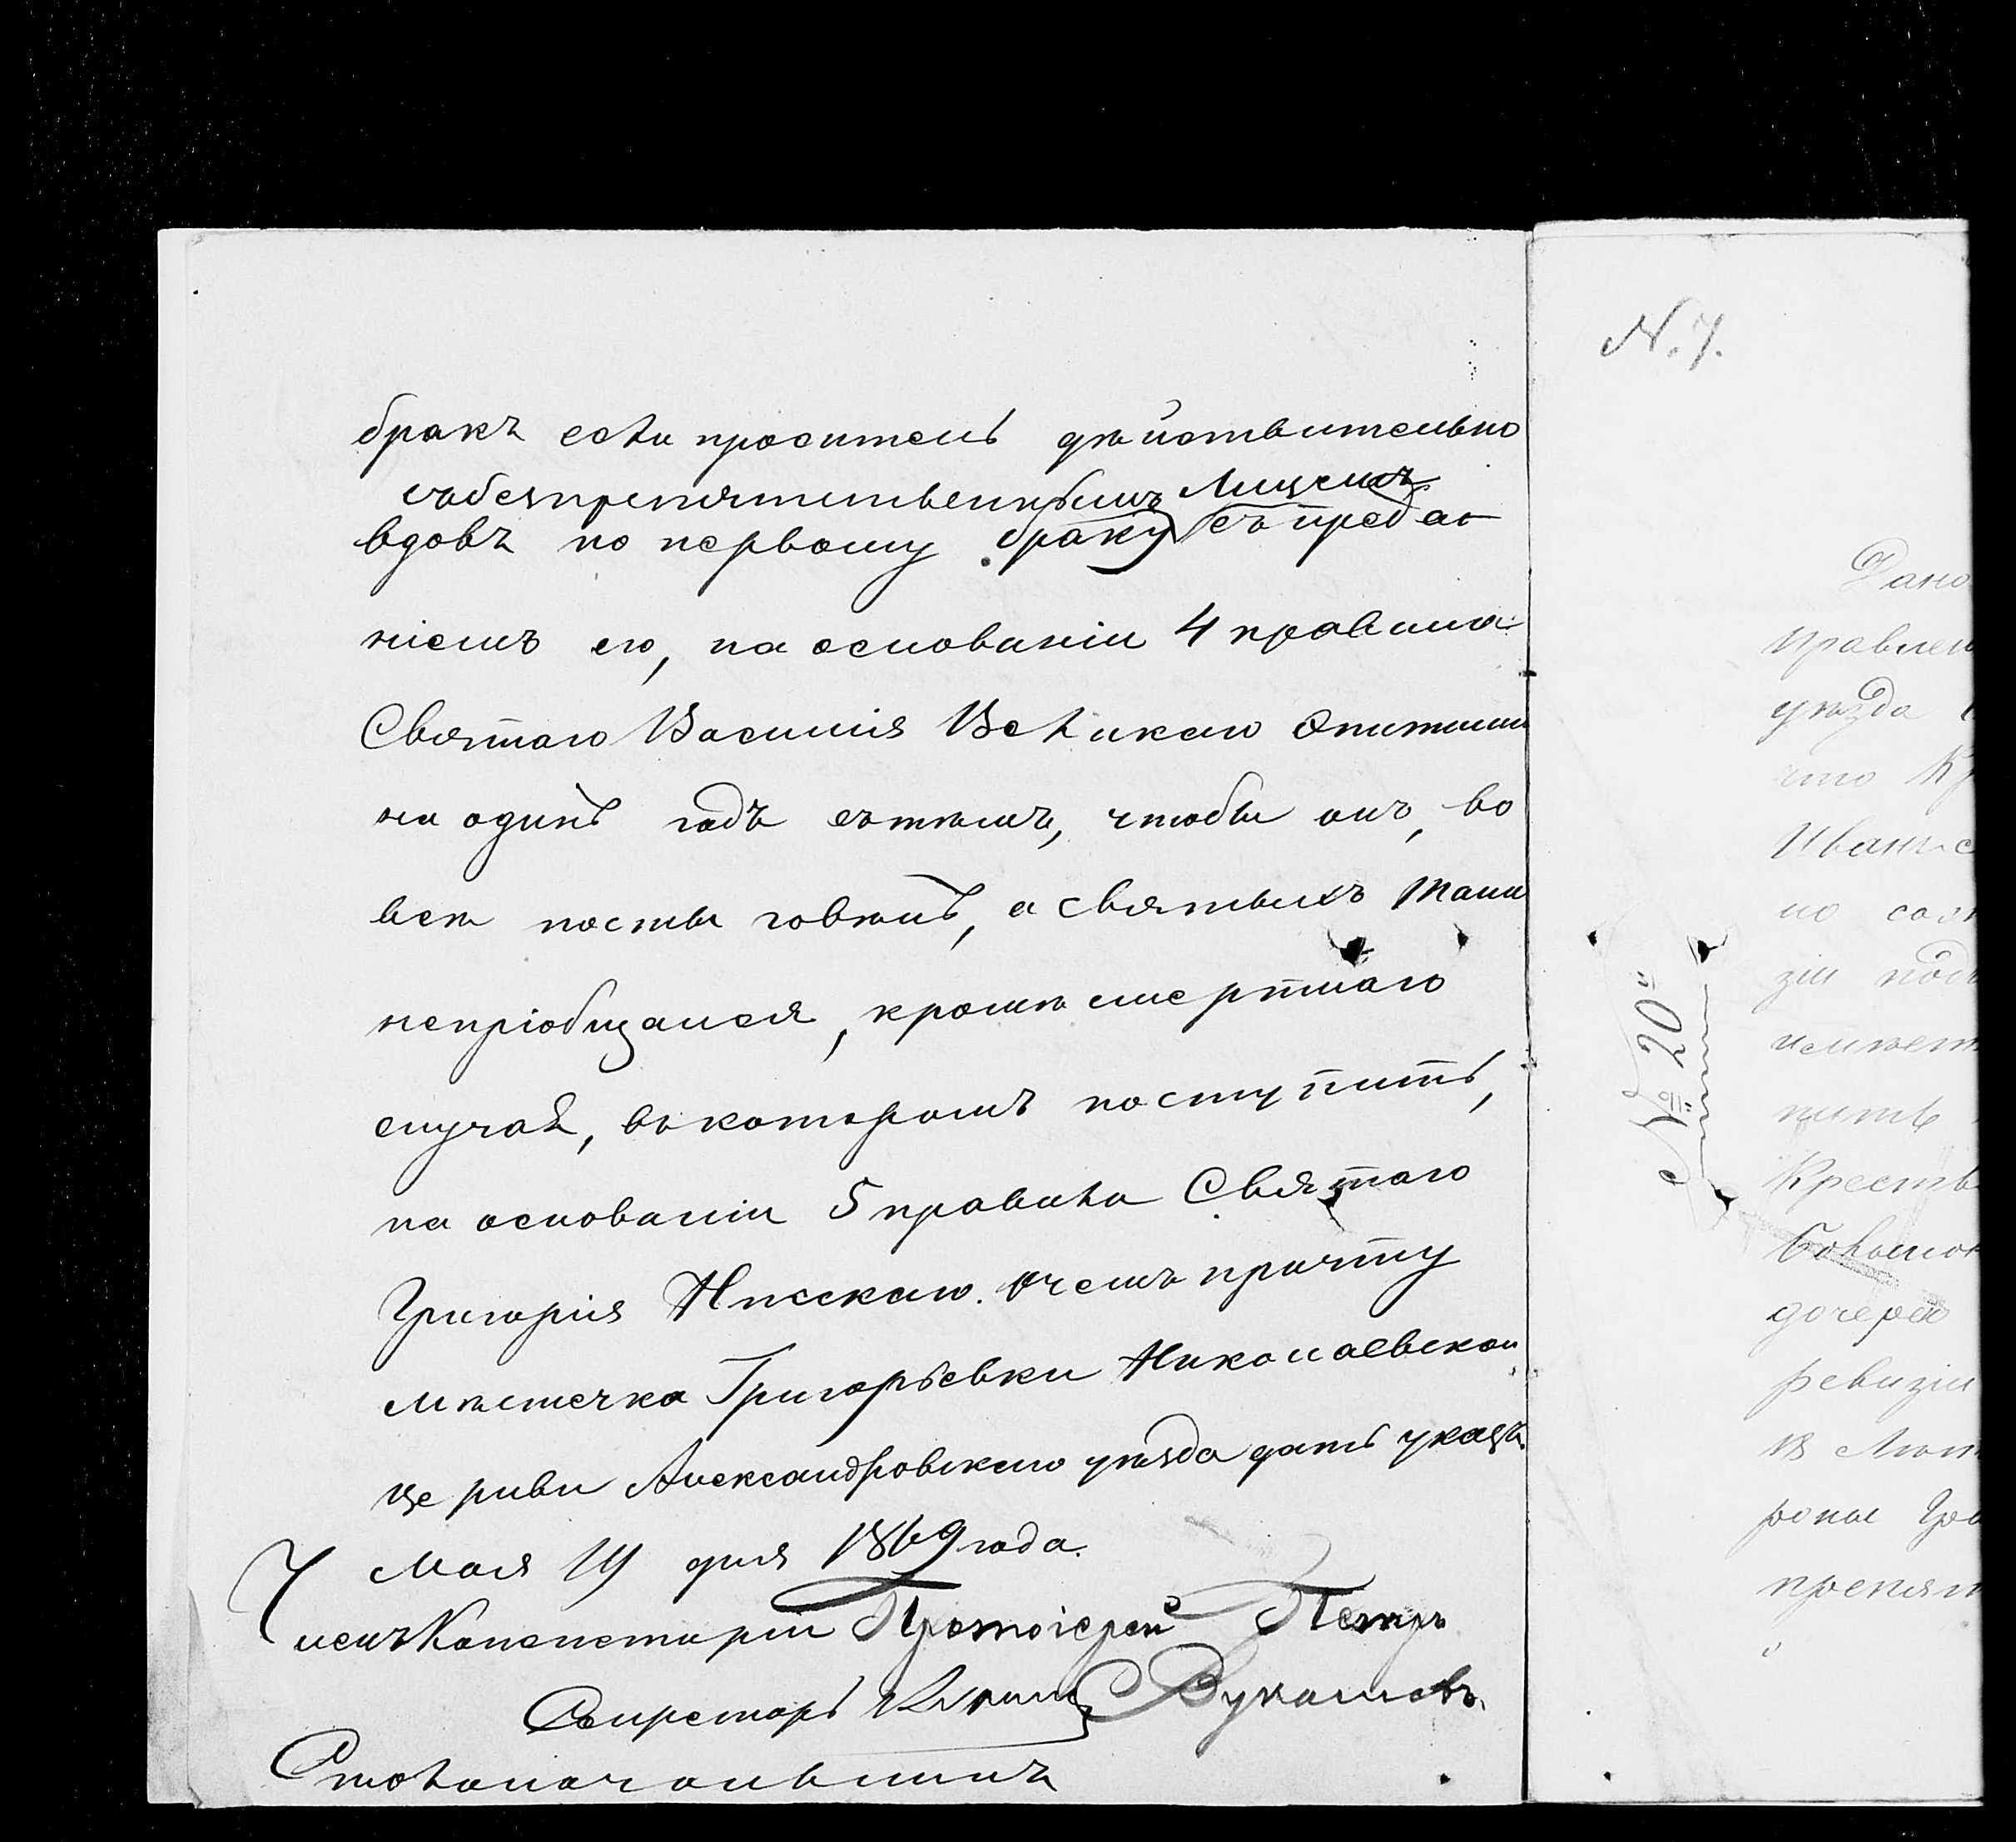 бракъ если проситель дѣйствительно
съ безпрепятственнымъ лицемъ
вдовъ по первому браку съ преда-
ніемъ его, на основаніи 4 правила
Святаго Василія Великаго Эпитиміи
на одинъ годъ съ тѣмъ, чтобы онъ, во
всѣ посты говѣлъ, а святыхъ Таин
непріобщался, кромѣ смертнаго
случая, въ которомъ поступить,
на основаніи 5 правила Святаго
Григорія Нисскаго. О чемъ причту
мѣстечка Григорьевки Николаевской
церкви Александровскаго уѣзда дать указъ.
Мая 19 дня 1869 года.
Членъ Консисторіи Протоіерей Петръ
Секретарь
Столоначальникъ
N. 7.
№ 20й
Дано
правлен
уѣзда
что Кр
Иванъ
по
зіи подъ
имѣет
пить
Крестья
дочерью
ревизіи
препят